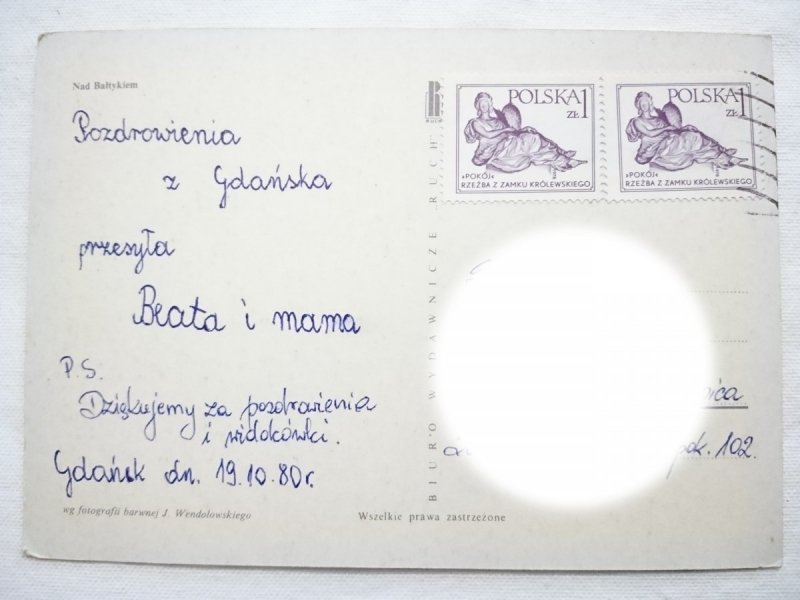 Nad Bałtykiem
Pozdrowienia
z Gdańska
przesyła
Beata i mama
P.S.
Dziękujemy za pozdrowienia
i widokówki.
Gdańsk dn. 19.10.80r.
wg fotografii barwnej J. Wendołowskiego
Wszelkie prawa zastrzeżone
BIURO WYDAWNICZE RUCH
RUCH
POLSKA 1
ZŁ
»POKÓJ«
RZEŹBA Z ZAMKU KRÓLEWSKIEGO
POLSKA 1
ZŁ
»POKÓJ«
RZEŹBA Z ZAMKU KRÓLEWSKIEGO
pok. 102.